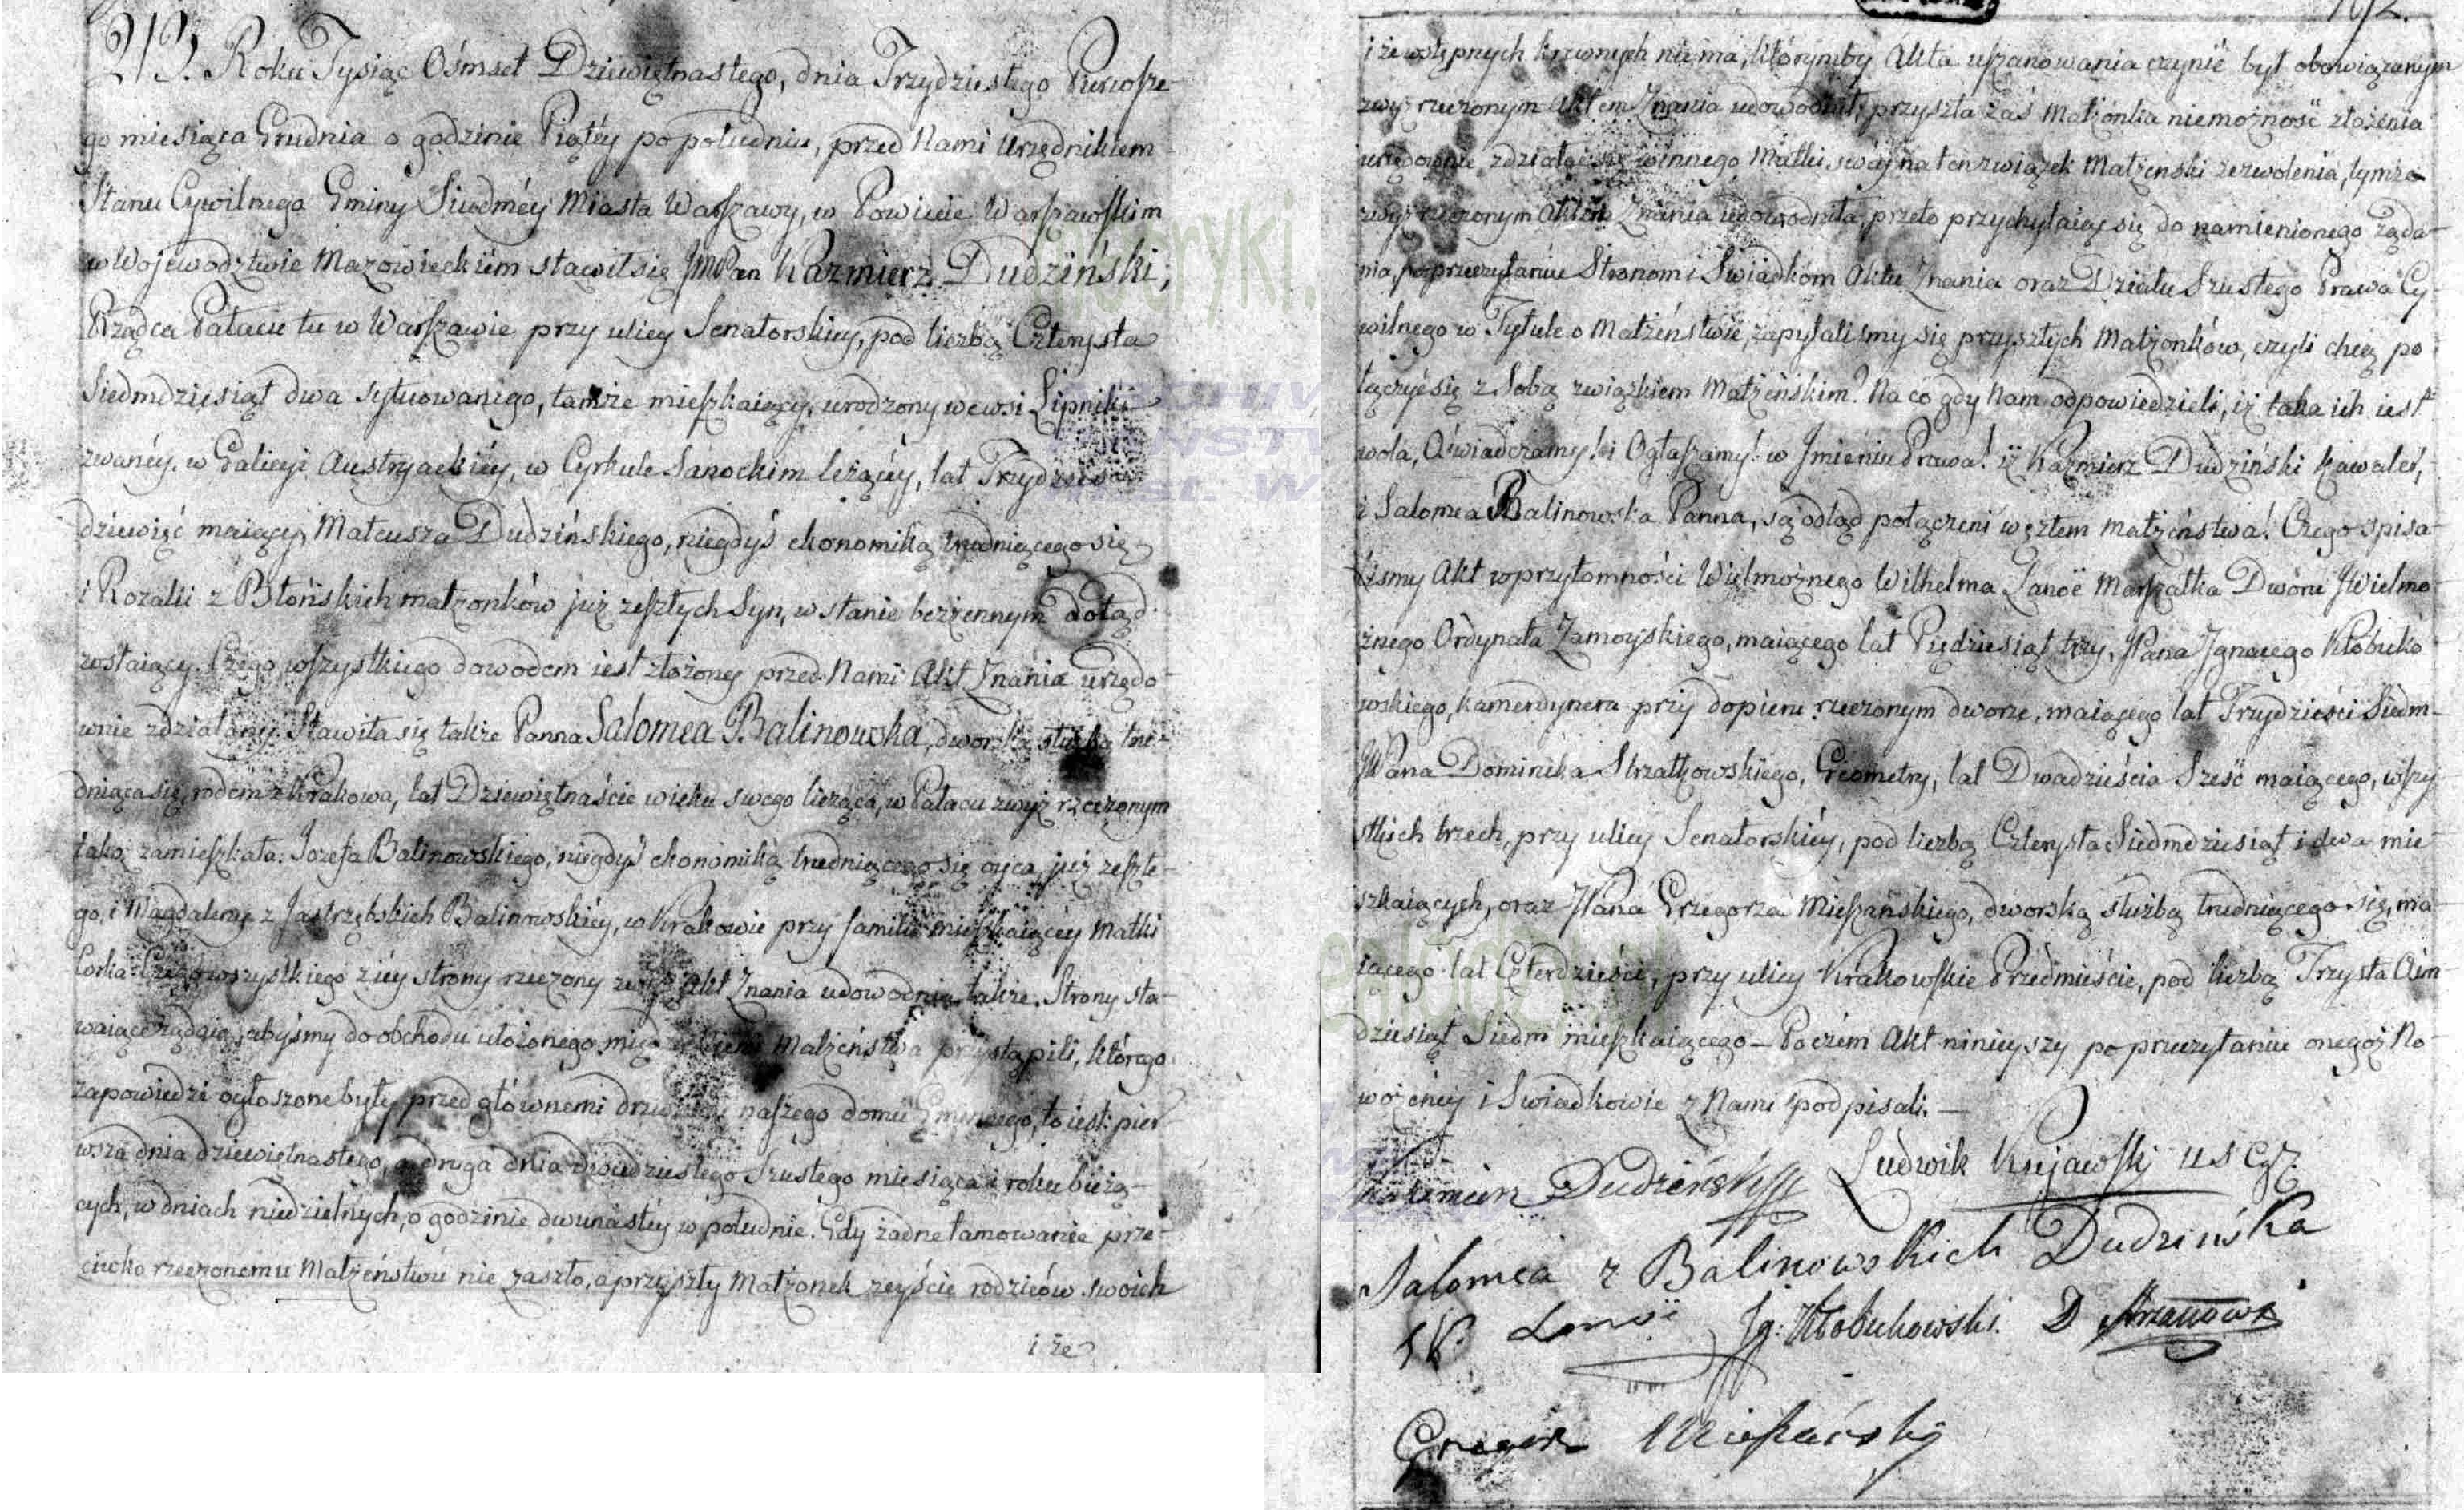 Roku Tysiąc Ośmset Dziewiętnastego, dnia Trzydziestego Pierwsze-
go miesiąca Grudnia o godzinie Piątéy po południu, przed Nami Urzędnikiem
Stanu Cywilnego Gminy Siódméy Miasta Warszawy, w Powiecie Warszawskim
w Wojewodztwie Mazowieckiem stawił się JmPan Kazmierz Dudziński,
Rządca Pałacu tu w Warszawie przy ulicy Senatorskiey, pod liczbą Czterysta
Siedmdziesiąt dwa sytuowanego, tamże mieszkaiący, urodzony we wsi Lipniki
zwanéy, w Galicyi Austryackiéy, w Cyrkule Sanockim leżącéy, lat Trzydzieści
dziewięć maiący, Mateusza Dudzińskiego, niegdyś ekonomiką trudniącego się
i Rozalii z Błońskich małżonków już zeszłych Syn, w stanie bezżennym dotąd
zostaiący. Czego wszystkiego dowodem iest złożony przed Nami Akt Znania urzędo-
wnie zdziałany. Stawiła się także Panna Salomea Balinowska, dworską służbą tru-
dniąca się, rodem z Krakowa, lat Dziewiętnaście wieku swego licząca, w Pałacu zwyż rzeczonym
także zamieszkała. Jozefa Balinowskiego, niegdyś ekonomiką trudniącego się oyca, już zeszłe-
go, i Magdaleny z Jastrzębskich Balinowskiéy, w Krakowie przy familii mieszkaiącéy Matki
Corka. Czego wszystkiego z iéy strony rzeczony zwyż Akt Znania udowodnia także. Strony sta-
waiące żądaią, abyśmy do obchodu ułożonego między niemi Małżeństwa przystąpili, którego
zapowiedzi ogłoszone były przed głównemi drzwiami naszego domu Gminnego, to iest: pier-
wsza dnia dziewiętnastego, a druga dnia dwudziestego Szustego miesiąca i roku bieżą-
cych, w dniach niedzielnych, o godzinie dwunastéy w południe. Gdy żadne tamowanie prze-
ciwko rzeczonemu Małżeństwu nie zaszło, a przyszły Małżonek zeyście rodziców swoich
i że
i że wstępnych krewnych nie ma, którymby Akta uszanowania czynić był obowiązanym
zwyż rzeczonym Aktem Znania udowodnił, przyszła zaś Małżonka niemożność złożenia
urzędownie zdziałać się winnego Matki swéy na ten związek Małżeński zezwolenia, tymże
zwyż rzeczonym Aktem Znania udowodniła, przeto przychylaiąc się do namienionego żąda-
nia, po przeczytaniu Stronom i Swiadkom Aktu Znania oraz Działu Szustego Prawa Cy-
wilnego w Tytule o Małżeństwie, zapytaliśmy się przyszłych Małżonków, czyli chcą po
łączyć się z Sobą związkiem Małżeńskim? Na co gdy Nam odpowiedzieli, iż taka ich iest
wola, Oświadczamy! i Ogłaszamy! w Jmieniu Prawa! iż Kazmierz Dudziński kawaler,
i Salomea Balinowska Panna, są odtąd połączeni węzłem małżeństwa! Czego spisa-
liśmy Akt w przytomności Wielmożnego Wilhelma Lanoë Marszałka Dworu JWielmo
żnego Ordynata Zamoyskiego, maiącego lat Pięćdziesiąt trzy, JPana Jgnacego Kłobuko
wskiego, kamerdynera przy dopiero rzeczonym dworze, maiącego lat Trzydzieści Siedm
JPana Dominika Strzałkowskiego, Geometry, lat Dwadzieścia Sześć maiącego, wszy
stkich trzech, przy ulicy Senatorskiéy, pod liczbą Czterysta Siedmdziesiąt i dwa mie-
szkaiących, oraz JPana Grzegorza Mieszańskiego, dworską służbą trudniącego się, ma-
iącego lat Czterdzieści, przy ulicy Krakowskie Przedmieście, pod liczbą Trzysta Ośm-
dziesiąt Siedm mieszkaiącego – Poczém Akt ninieyszy po przeczytaniu onegoż No-
wożeńcy i Swiadkowie z Nami podpisali. —
Kazimierz Dudziński Ludwik Kujawski
Salomea z Balinowskich Dudzińska
Lanoë Jg. Kłobukowski. D
Grzegorz Mieszański